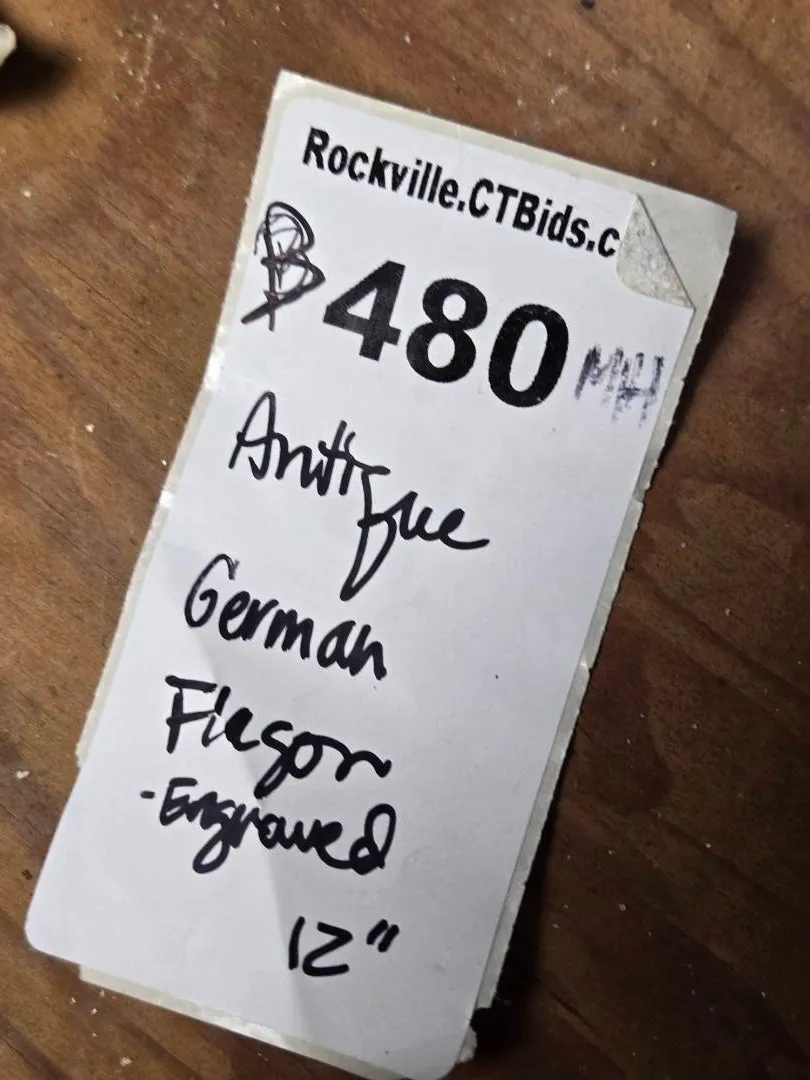 Rockville.CTBids.c
B 480 MH
Antique
German
Flagon
-Engraved
12"